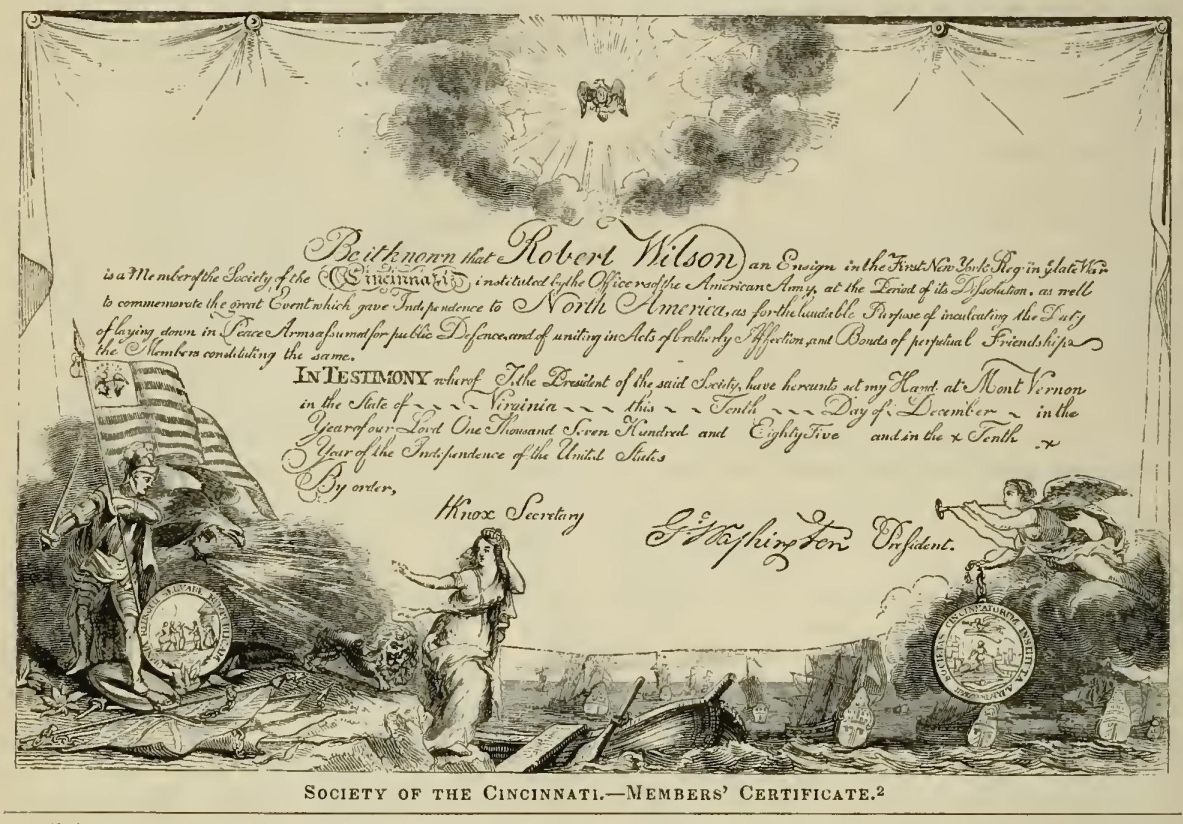 Be it known that Robert Wilson an Ensign in the First New York Reg. in ye late War
is a Member of the Society of the Cincinnati instituted by the Officers of the American Army, at the Period of its Dissolution, as well
to commemorate the great Event which gave Independence to North America, as for the laudable Purpose of inculcating the Duty
of laying down in Peace Arms assumed for public Defence, and of uniting in Acts of brotherly Affection, and Bonds of perpetual Friendship
the Members constituting the same.
IN TESTIMONY whereof I, the President of the said Society, have hereunto set my Hand at Mont Vernon
in the State of Virginia this Tenth Day of December in the
Year of our Lord One Thousand Seven Hundred and Eighty Five and in the Tenth
Year of the Independence of the United States
By order,
HKnox Secretary
Go Washington President.
SOCIETAS CINCINNATORUM INSTITUTA
SOCIETY OF THE CINCINNATI.—MEMBERS' CERTIFICATE.2